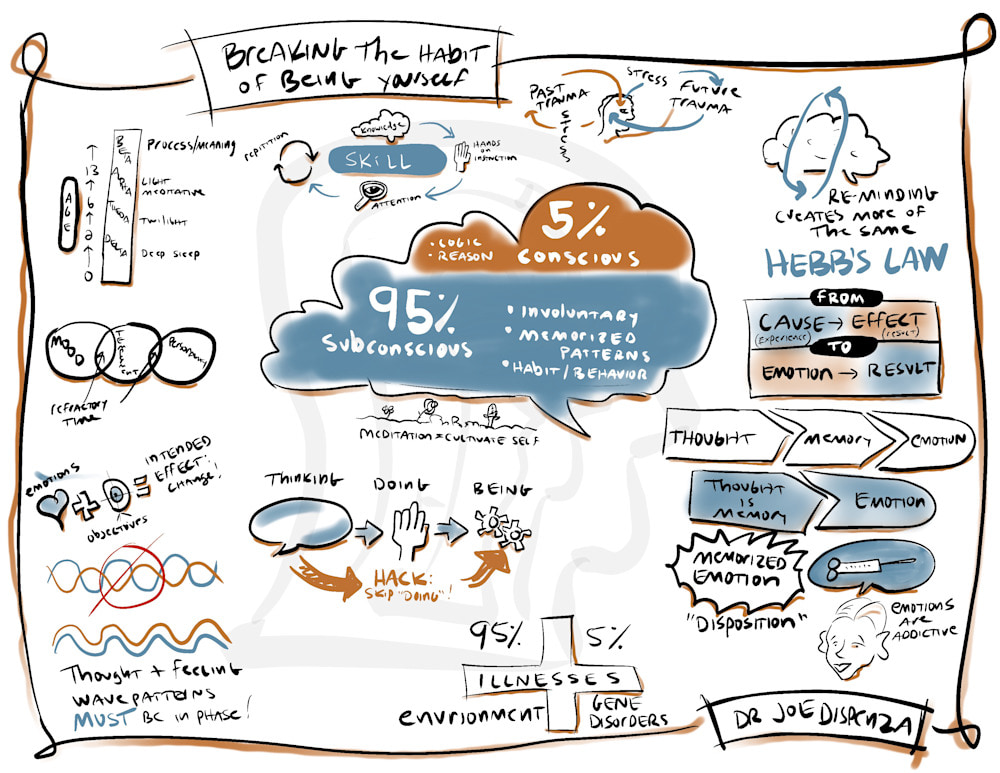 BREAKING THE HABIT
OF BEING YOURSELF
PAST
TRAUMA
STRESS
STRESS
FUTURE
TRAUMA
KNOWLEDGE
REPITITION
SKILL
HANDS
ON
INSTRUCTION
ATTENTION
AGE
13
6
2
0
BETA
ALPHA
THETA
DELTA
PROCESS/MEANING
LIGHT
MEDITATIVE
TWILIGHT
DEEP SLEEP
RE-MINDING
CREATES MORE OF
THE SAME
HEBB'S LAW
5%
CONSCIOUS
• LOGIC
• REASON
95%
SUBCONSCIOUS
• INVOLUNTARY
• MEMORIZED
PATTERNS
• HABIT/BEHAVIOR
FROM
CAUSE → EFFECT
(EXPERIENCE) (RESULT)
TO
EMOTION → RESULT
MOOD
TEMPERAMENT
PERSONALITY
REFRACTORY
TIME
MEDITATION = CULTIVATE SELF
THOUGHT
MEMORY
EMOTION
THOUGHT
IS
MEMORY
EMOTION
MEMORIZED
EMOTION
"DISPOSITION"
EMOTIONS
ARE
ADDICTIVE
EMOTIONS
+
OBJECTIVES
=
INTENDED
EFFECT:
CHANGE!
THINKING
DOING
BEING
HACK:
SKIP "DOING"!
THOUGHT + FEELING
WAVE PATTERNS
MUST BE IN PHASE!
95%
5%
ILLNESSES
ENVIRIONMENT
GENE
DISORDERS
DR JOE DISPENZA